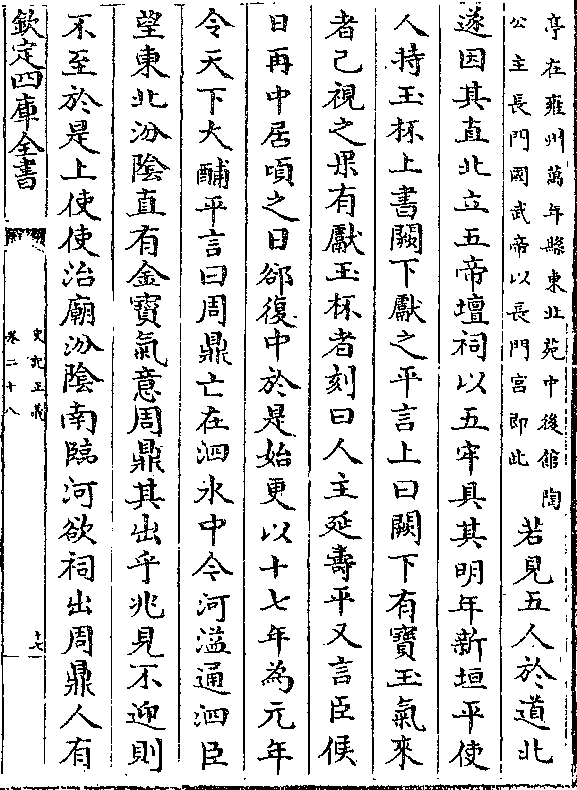 亭在雍州萬年縣東北苑中後館陶
公主長門國武帝以長門宮即此
若見五人於道北
遂因其直北立五帝壇祠以五牢具其明年新垣平使
人持玉杯上書闕下獻之平言上曰闕下有寶玉氣來
者己視之果有獻玉杯者刻曰人主延壽平又言臣候
日再中居頃之日郤復中於是始更以十七年為元年
令天下大酺平言曰周鼎亡在泗水中今河溢通泗臣
望東北汾陰直有金寶氣意周鼎其出乎兆見不迎則
不至於是上使使治廟汾陰南臨河欲祠出周鼎人有
欽定四庫全書
史記正義
卷二十八
十七